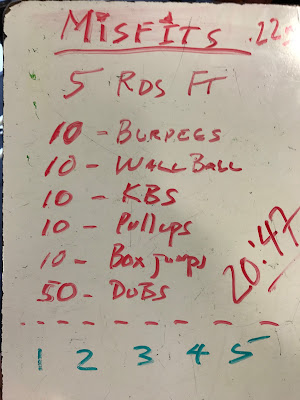 Misfits .22
5 RDS FT
10 - Burpees
10 - Wall Ball
10 - KBS
10 - Pullups
10 - Box jumps
50 - DUBS
20:47
1 2 3 4 5